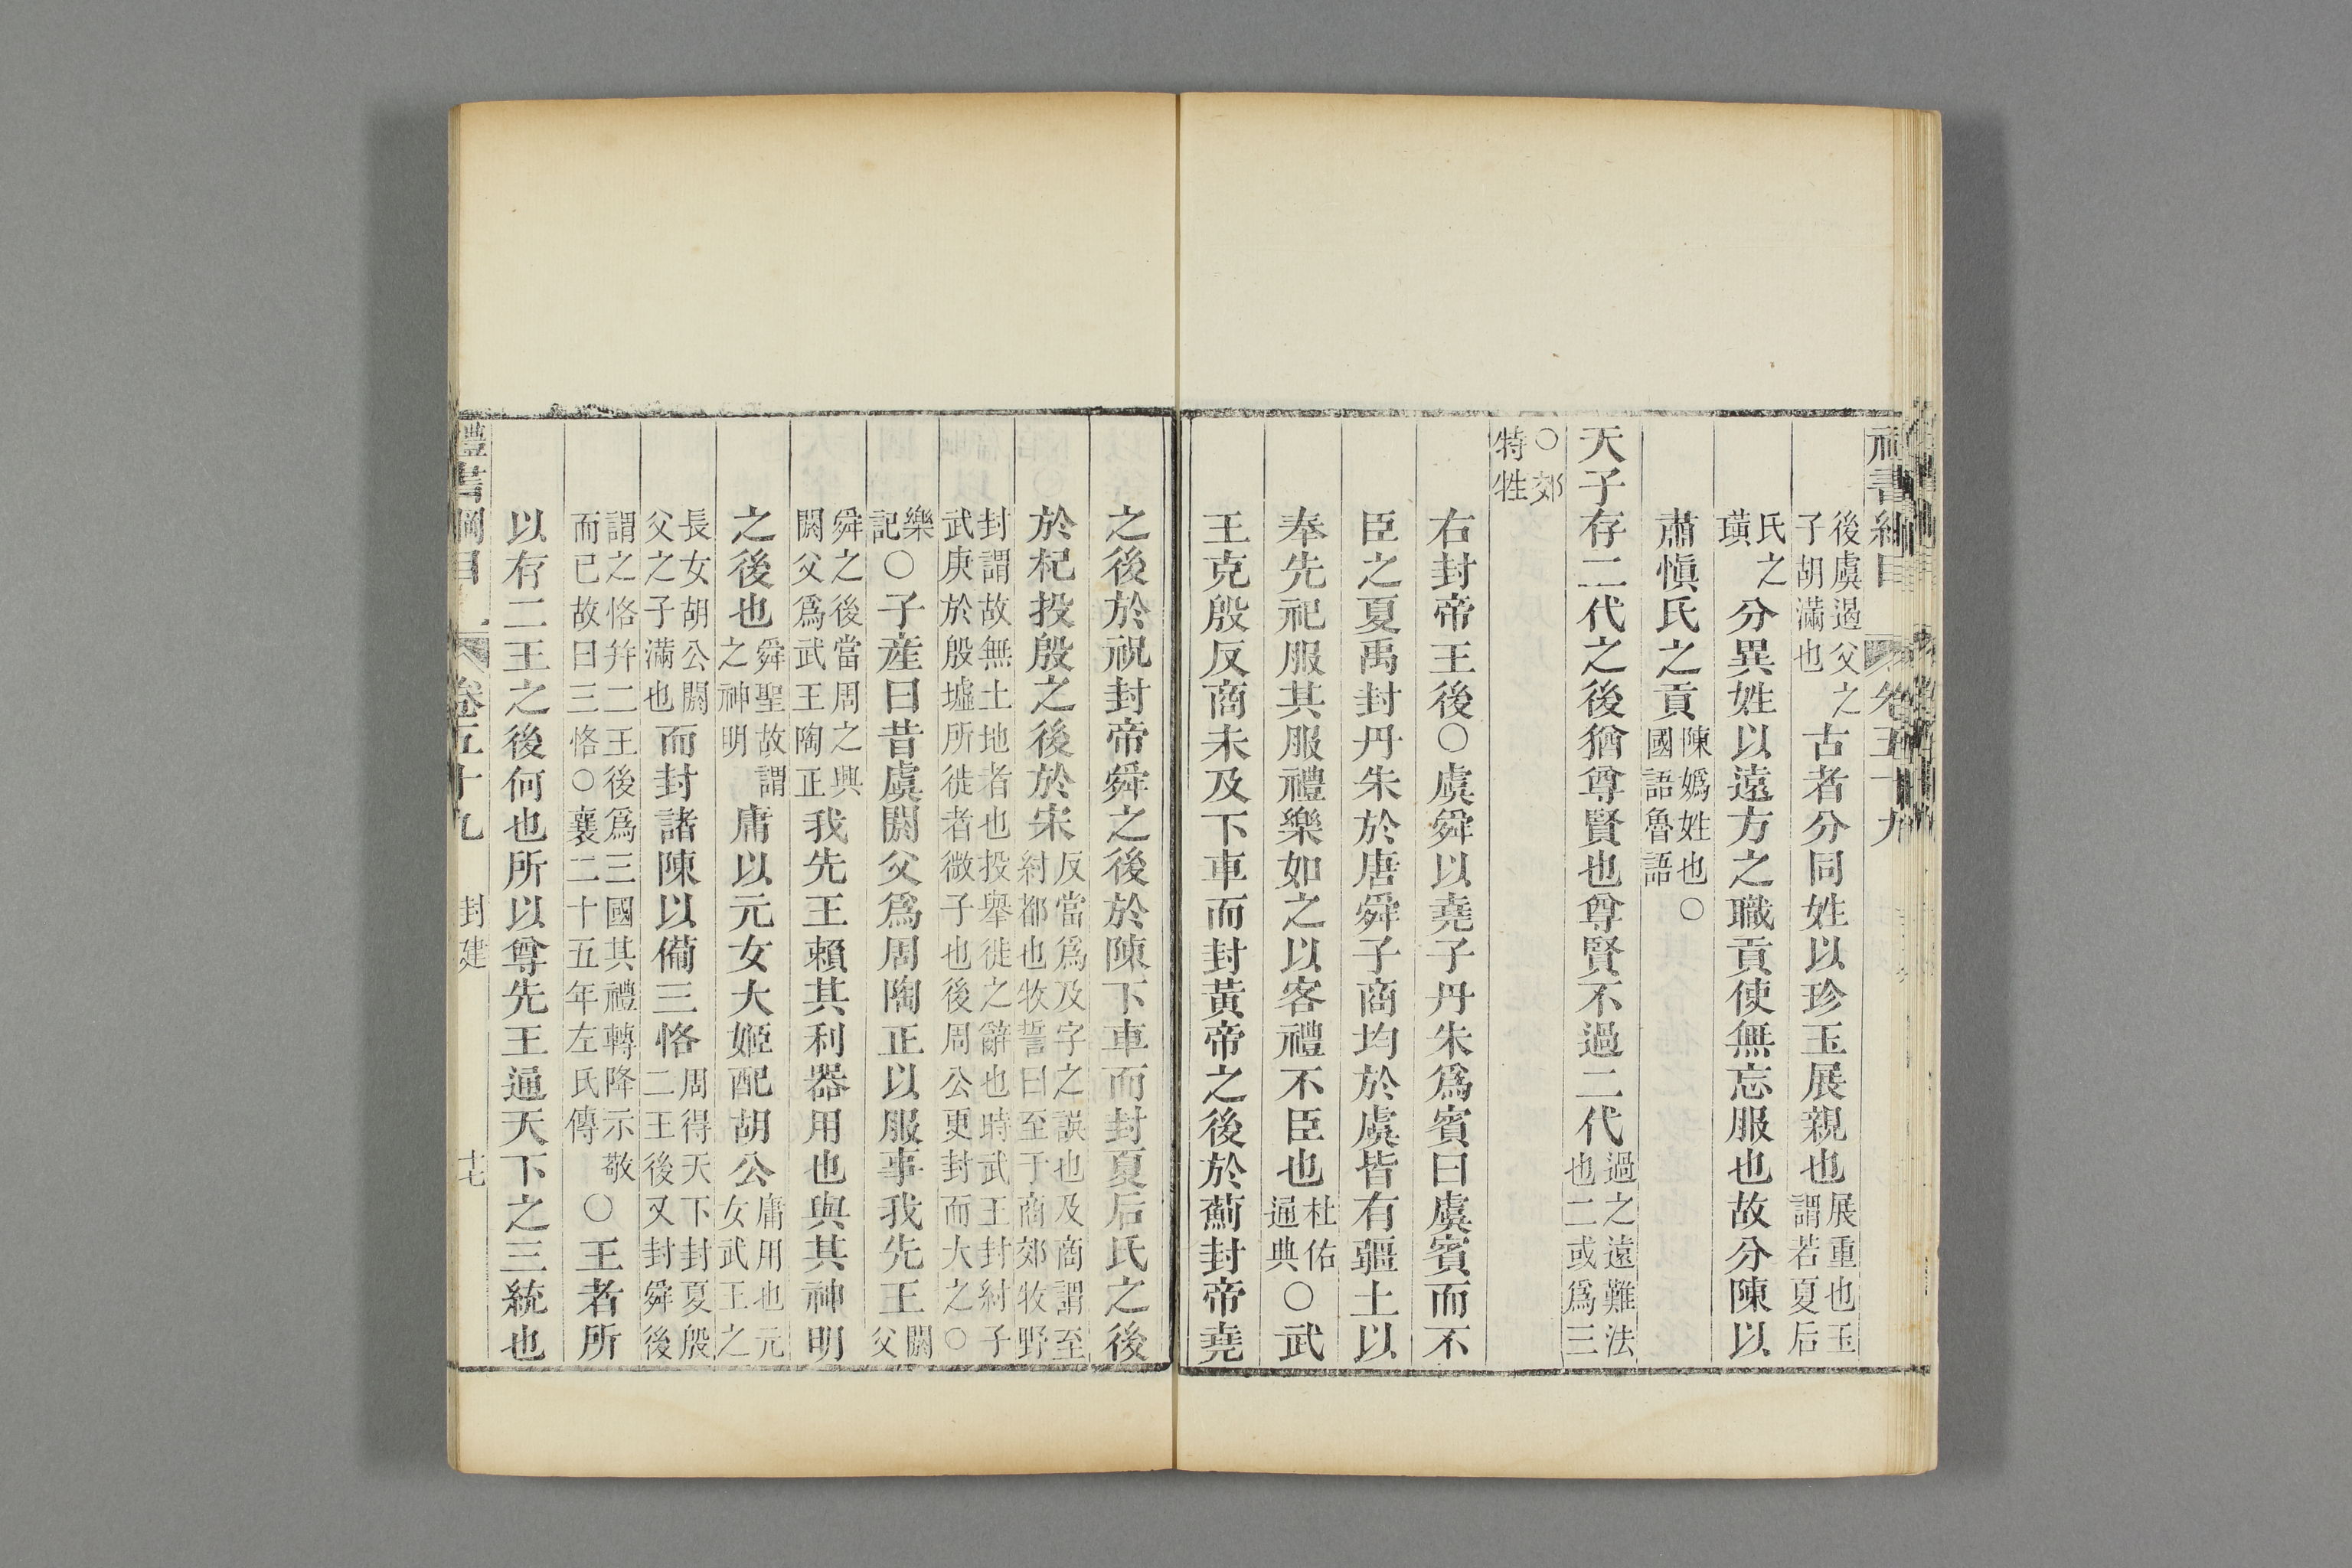 後虞遏父之
子胡滿也
古者分同姓以珍玉展親也
展重也玉
謂若夏后
氏之
璜
分異姓以遠方之職貢使無忘服也故分陳以
肅愼氏之貢
陳嬀姓也○
國語魯語
天子存二代之後猶尊賢也尊賢不過二代
過之遠難法
也二或爲三
○郊
特牲
右封帝王後○虞舜以堯子丹朱爲賓曰虞賓而不
臣之夏禹封丹朱於唐舜子商均於虞皆有疆土以
奉先祀服其服禮樂如之以客禮不臣也
杜佑
通典
○武
王克殷反商未及下車而封黃帝之後於薊封帝堯
之後於祝封帝舜之後於陳下車而封夏后氏之後
於杞投殷之後於宋
反當爲及字之誤也及商謂至
紂都也牧誓曰至于商郊牧野
封謂故無土地者也投舉徙之辭也時武王封紂子
武庚於殷墟所徙者微子也後周公更封而大之○
樂
記
○子産曰昔虞閼父爲周陶正以服事我先王
閼
父
舜之後當周之興
閼父爲武王陶正
我先王賴其利器用也與其神明
之後也
舜聖故謂
之神明
庸以元女大姬配胡公
庸用也元
女武王之
長女胡公閼
父之子滿也
而封諸陳以備三恪
周得天下封夏殷
二王後又封舜後
謂之恪幷二王後爲三國其禮轉降示敬
而已故曰三恪○襄二十五年左氏傳
○王者所
以有二王之後何也所以尊先王通天下之三統也
禮書綱目 卷五十九 封建 十七